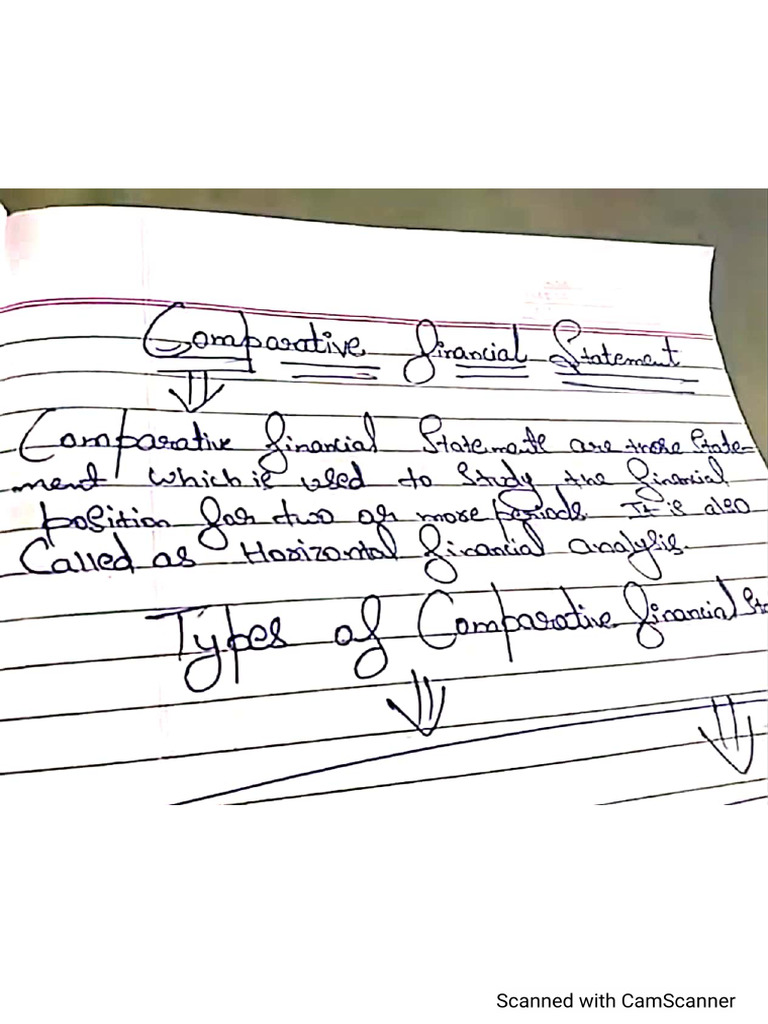 Comparative financial Statement
Comparative financial Statements are those State-
ment which is used to study the financial
position for two or more periods. It is also
Called as Horizontal financial analysis.
Types of Comparative financial Sta
Scanned with CamScanner